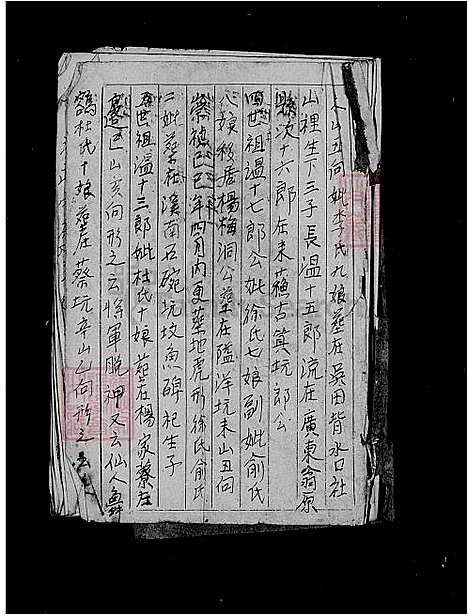 山丑向妣李氏九娘葬在吳田背水口社
山裡生下三子長温十五郎流在廣東翁原
縣次十六郎在来蘓古箕坑郎公
四世祖温十七郎公妣徐氏七娘副妣俞氏
八娘移居楊梅洞公葬在隘洋坑未山丑向
崇禎己巳年四月內更葬地虎形徐氏俞氏
二妣葬在溪南石碗坑坟魚碑祀生子
五世祖温十三郎妣杜氏十娘葬在楊家寮左
邊巳山亥向形之云將軍脱神又云仙人
鶴杜氏十娘葬左蔡坑辛山乙向形之云